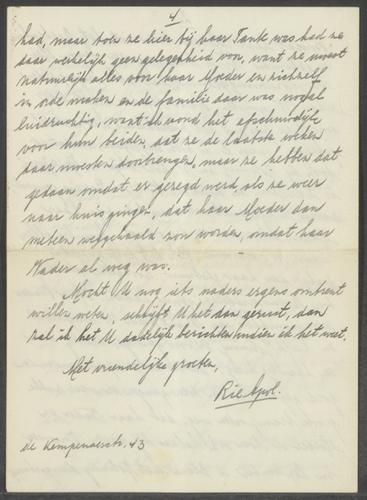 4
had, maar toen ze hier bij haar Tante was had ze
daar werkelijk geen gelegenheid voor, want ze moest
natuurlijk alles voor haar Moeder en zichzelf
in orde maken en de familie daar was nogal
luidruchtig, want ik vond het afschuwelijk
voor hun beiden, dat ze de laatste weken
daar moesten doorbrengen, maar ze hebben dat
gedaan omdat er gezegd werd, als ze weer
naar huis gingen, dat haar Moeder dan
meteen weggehaald zou worden, omdat haar
Vader al weg was.
Mocht U nog iets naders ergens omtrent
willen weten, schrijft U het dan gerust, dan
zal ik het U dadelijk berichten indien ik het weet.
Met vriendelijke groeten,
Rie
de Kempenaerstr. 43